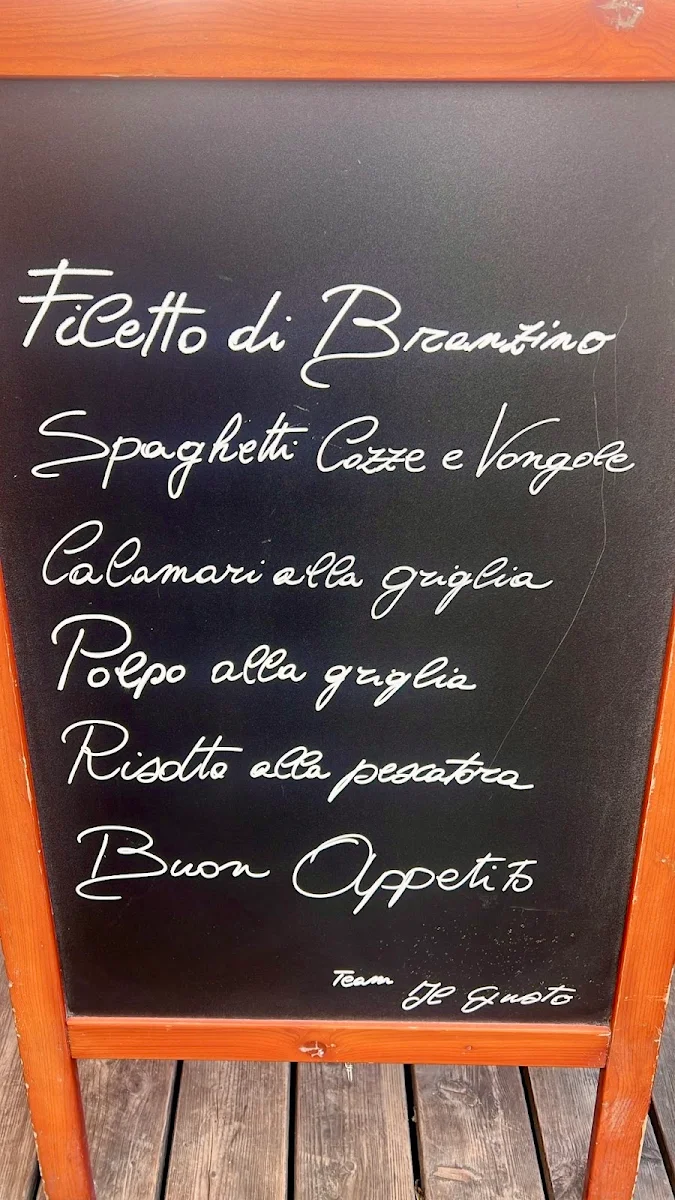 Filetto di Branzino
Spaghetti Cozze e Vongole
Calamari alla griglia
Polpo alla griglia
Risotto alla pescatora
Buon Appetito
Team Il Gusto